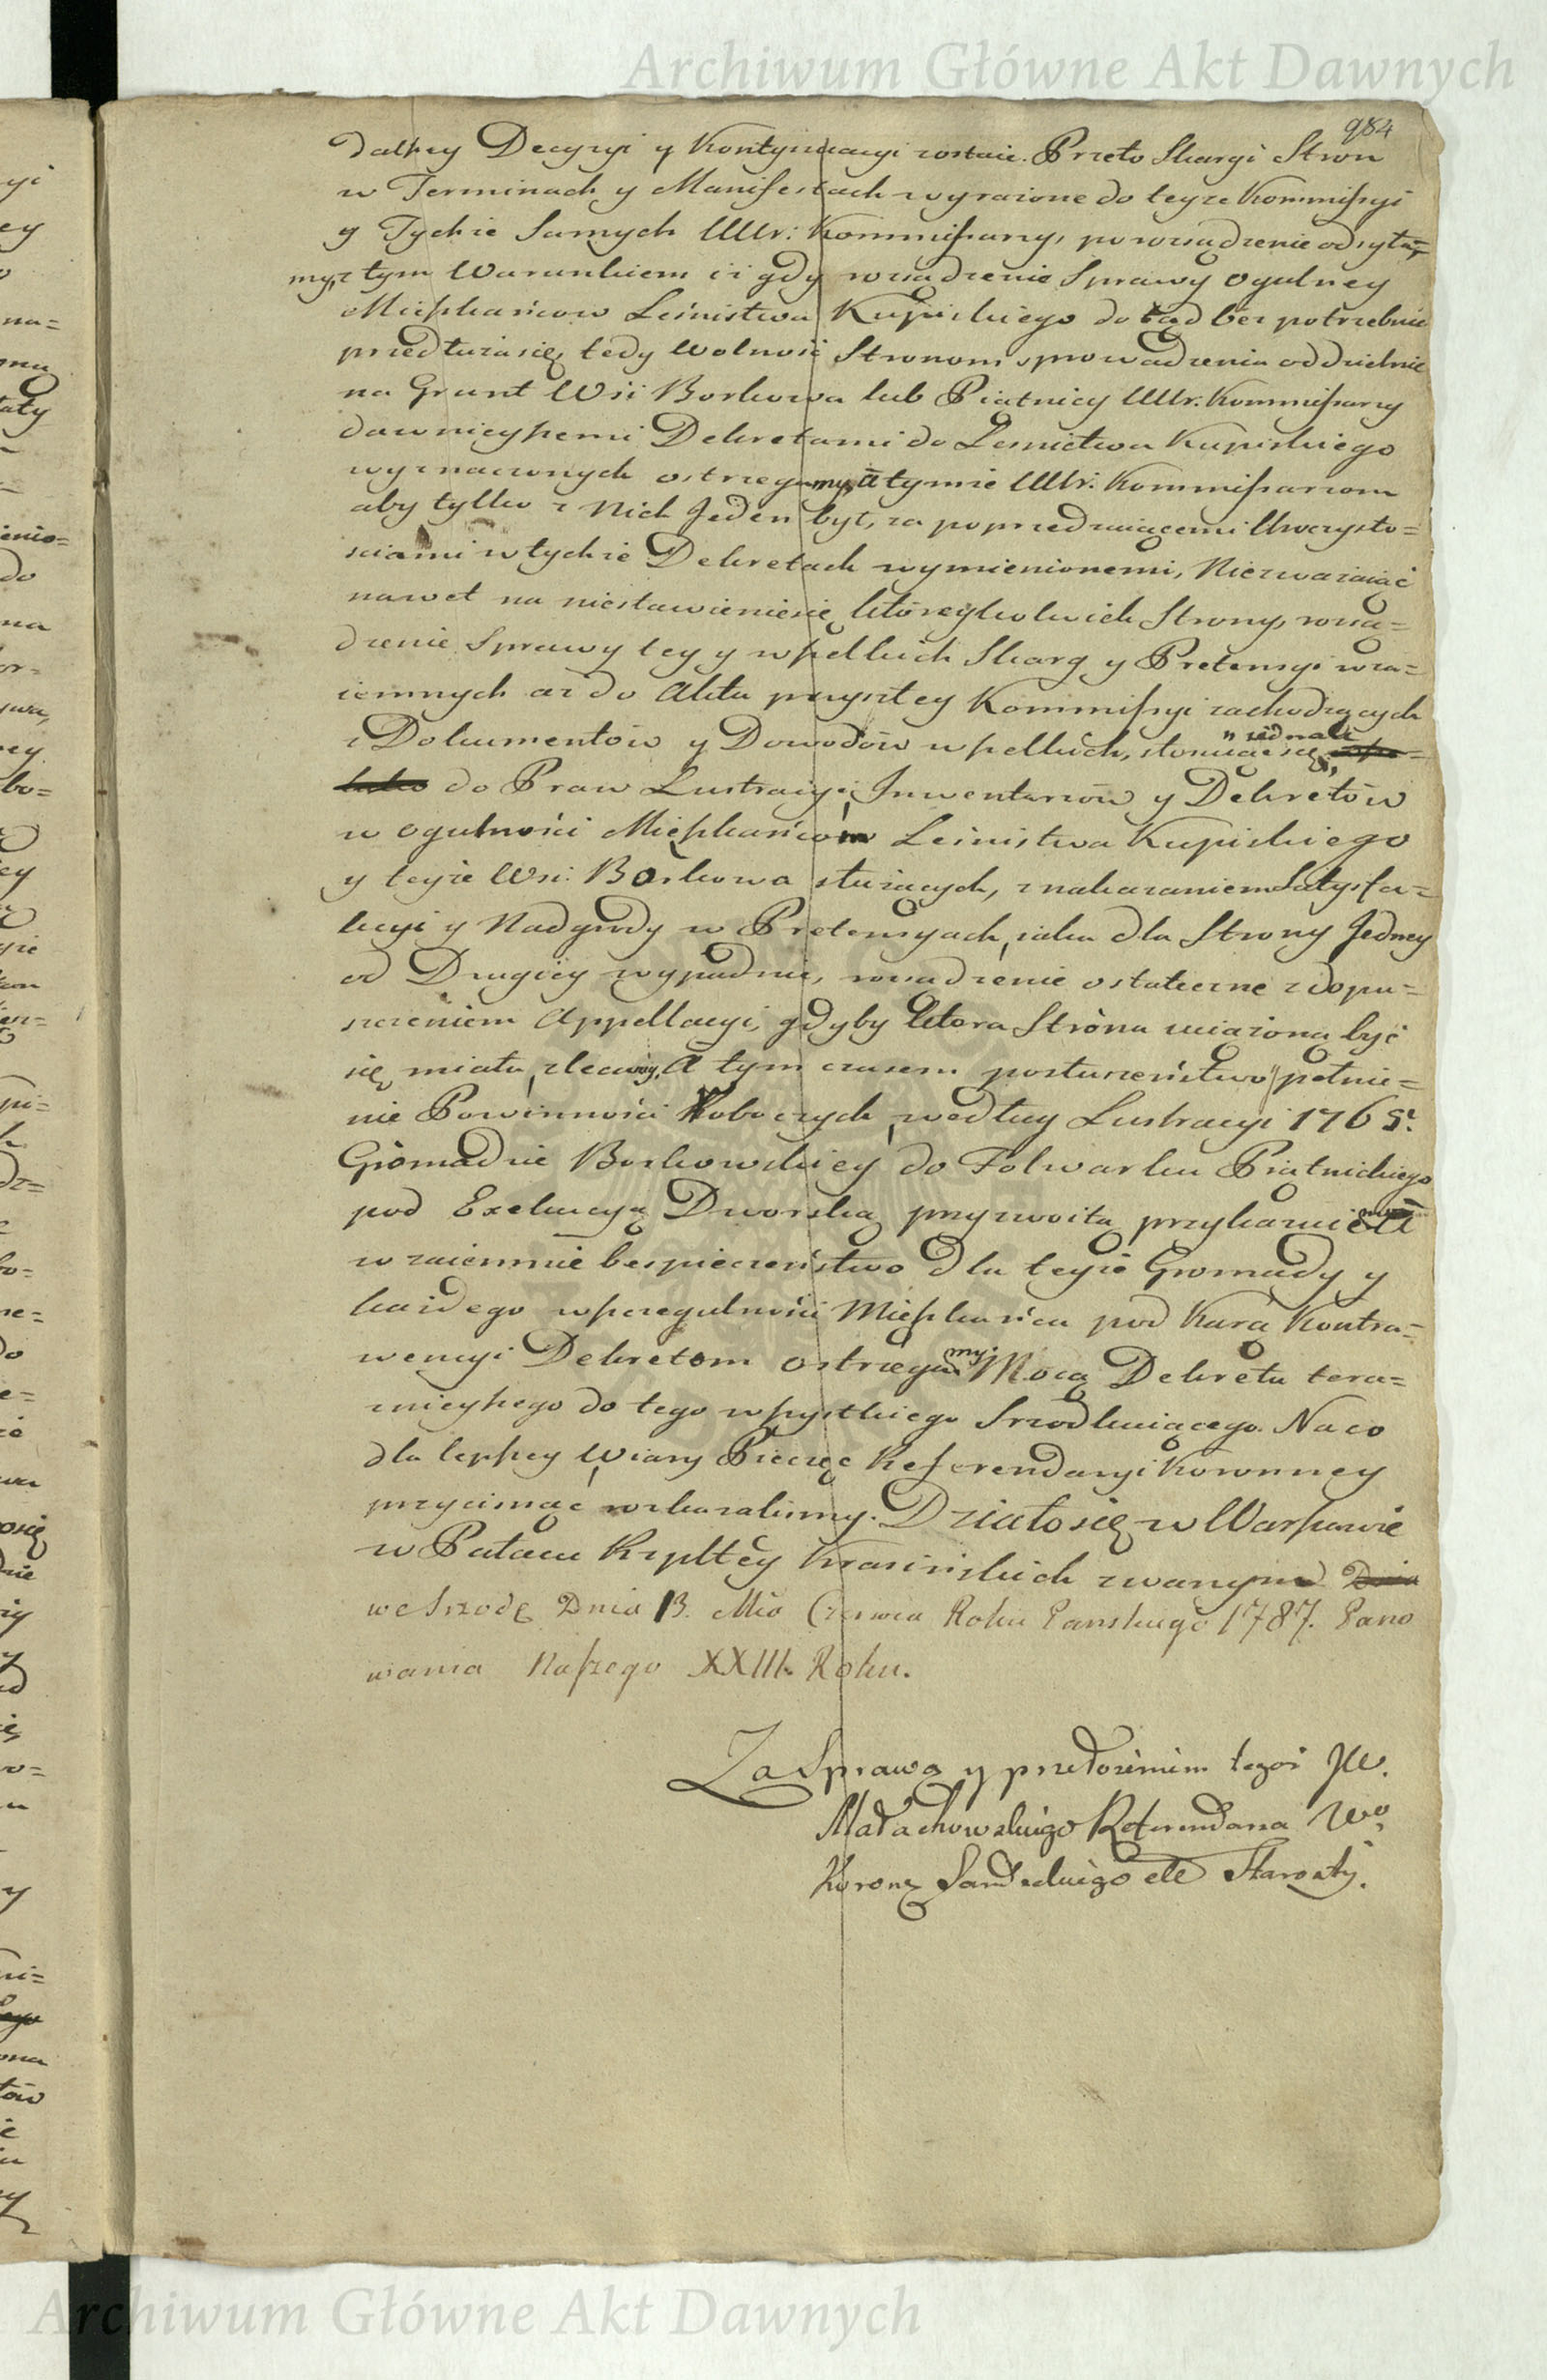 Archiwum Główne Akt Dawnych
984
dalszey Decyzyi y Kontynuacyi zostaie. Przeto Skargi Stron
w Terminach y Manifestach wyrażone do teyże Kommissyi
y Tychże Samych Ur: Kommissarzy, po rozsądzenie odsyła=
my, z tym Warunkiem iż gdy rozsądzenie Sprawy ogulney
Mieszkańcow Leśnistwa Kupiskiego do tąd bez potrzebnie
przedłuża się, tedy Wolność Stronom sprowadzenia oddzielnie
na Grunt Wsi Borkowa lub Piatnicy Ur. Kommissarzy
dawnieyszemi Dekretami do Lesnictwa Kupiskiego
wyznaczonych ostrzegamy, a tymże Ur. Kommissarzom
aby tylko z Nich Jeden był, za poprzedzaiącemi Uroczysto=
sciami w tychże Dekretach wymienionemi, Niezważaiąc
nawet na niestawienie się któreykolwiek Strony, rozsą=
dzenie Sprawy tey y wszelkich Skarg y Pretensyi wza=
iemnych aż do Aktu przyszłey Kommissyi zachodzących
z Dokumentów y Dowodów wszelkich, stosuiąc się iednak
do Praw Lustracyi, Inwentarzów y Dekretów
w ogulności Mieszkańcom Leśnistwa Kupiskiego
y teyże Wsi Borkowa służących, z nakazaniem Satysfa=
kcyi y Nadgrody w Pretensyach, iaka dla Strony Jedney
od Drugiey wypadnie, rozsądzenie ostateczne z dopu=
szczeniem Appellacyi, gdyby która Strona uciążoną być
się miała, zlecamy. A tym czasem posłuszeństwo pełnie=
nie Powinności Roboczych, według Lustracyi 1765 r.
Gromadzie Borkowskiey do Folwarku Piatnickiego
pod Exekucyą Dworską przyzwoitą przykazuiemy a
wzaiemnie bespieczeństwo dla teyże Gromady y
każdego wszczegulności Mieszkańca pod Karą Kontra=
wencyi Dekretom ostrzegamy Mocą Dekretu tera=
znieyszego do tego wszystkiego Srzodkuiącego. Na co
dla lepszey Wiary Pieczęć Referendaryi Koronney
przycisnąć rozkazalismy. Działo się w Warszawie
w Pałacu Rzpltey Krasińskich zwanym Dnia
we Srzodę Dnia 13. Mca Czerwca Roku Panskiego 1787. Pano
wania Naszego XXIII. Roku.
Za Sprawą y przełożeniem tegoż JW.
Małachowskiego Referendarza Wo
Koronę Sandeckiego etc Starosty.
Archiwum Główne Akt Dawnych